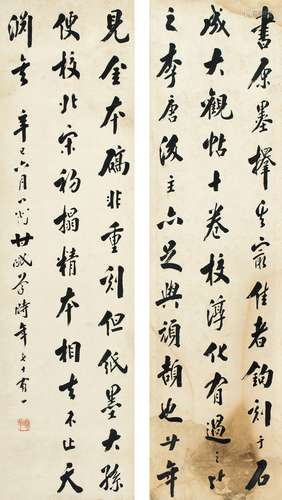 書原墨擇其寂佳者鉤刻于石
成大觀帖十卷校淳化有過之
之李唐後主六足與頑頡也廿年
見金本礄非重刻但紙墨大孫
便校北宋初搨精本相去不止天
淵矣 辛巳六月 時年七十有一